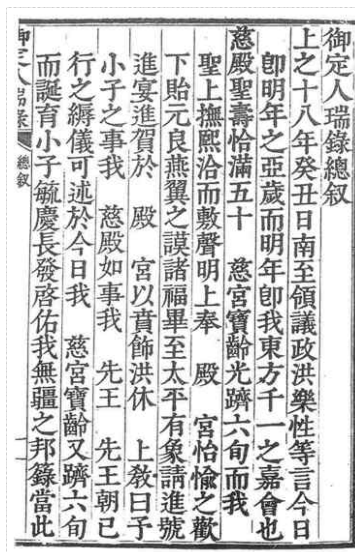 御定人瑞錄總叙
上之十八年癸丑日南至領議政洪樂性等言今日
卽明年之亞歲而明年卽我東方千一之嘉會也
慈殿聖壽恰滿五十　慈宮寶齡光躋六旬而我
聖上撫熙洽而敷聲明上奉　殿　宮怡愉之歡
下貽元良燕翼之謨諸福畢至太平有象請進號
進宴進賀於　殿　宮以賁飾洪休　上敎曰予
小子之事我　慈殿如事我　先王　先王朝已
行之縟儀可述於今日我　慈宮寶齡又躋六旬
而誕育小子毓慶長發啓佑我無疆之邦籙當此
御定人瑞錄　總叙　一